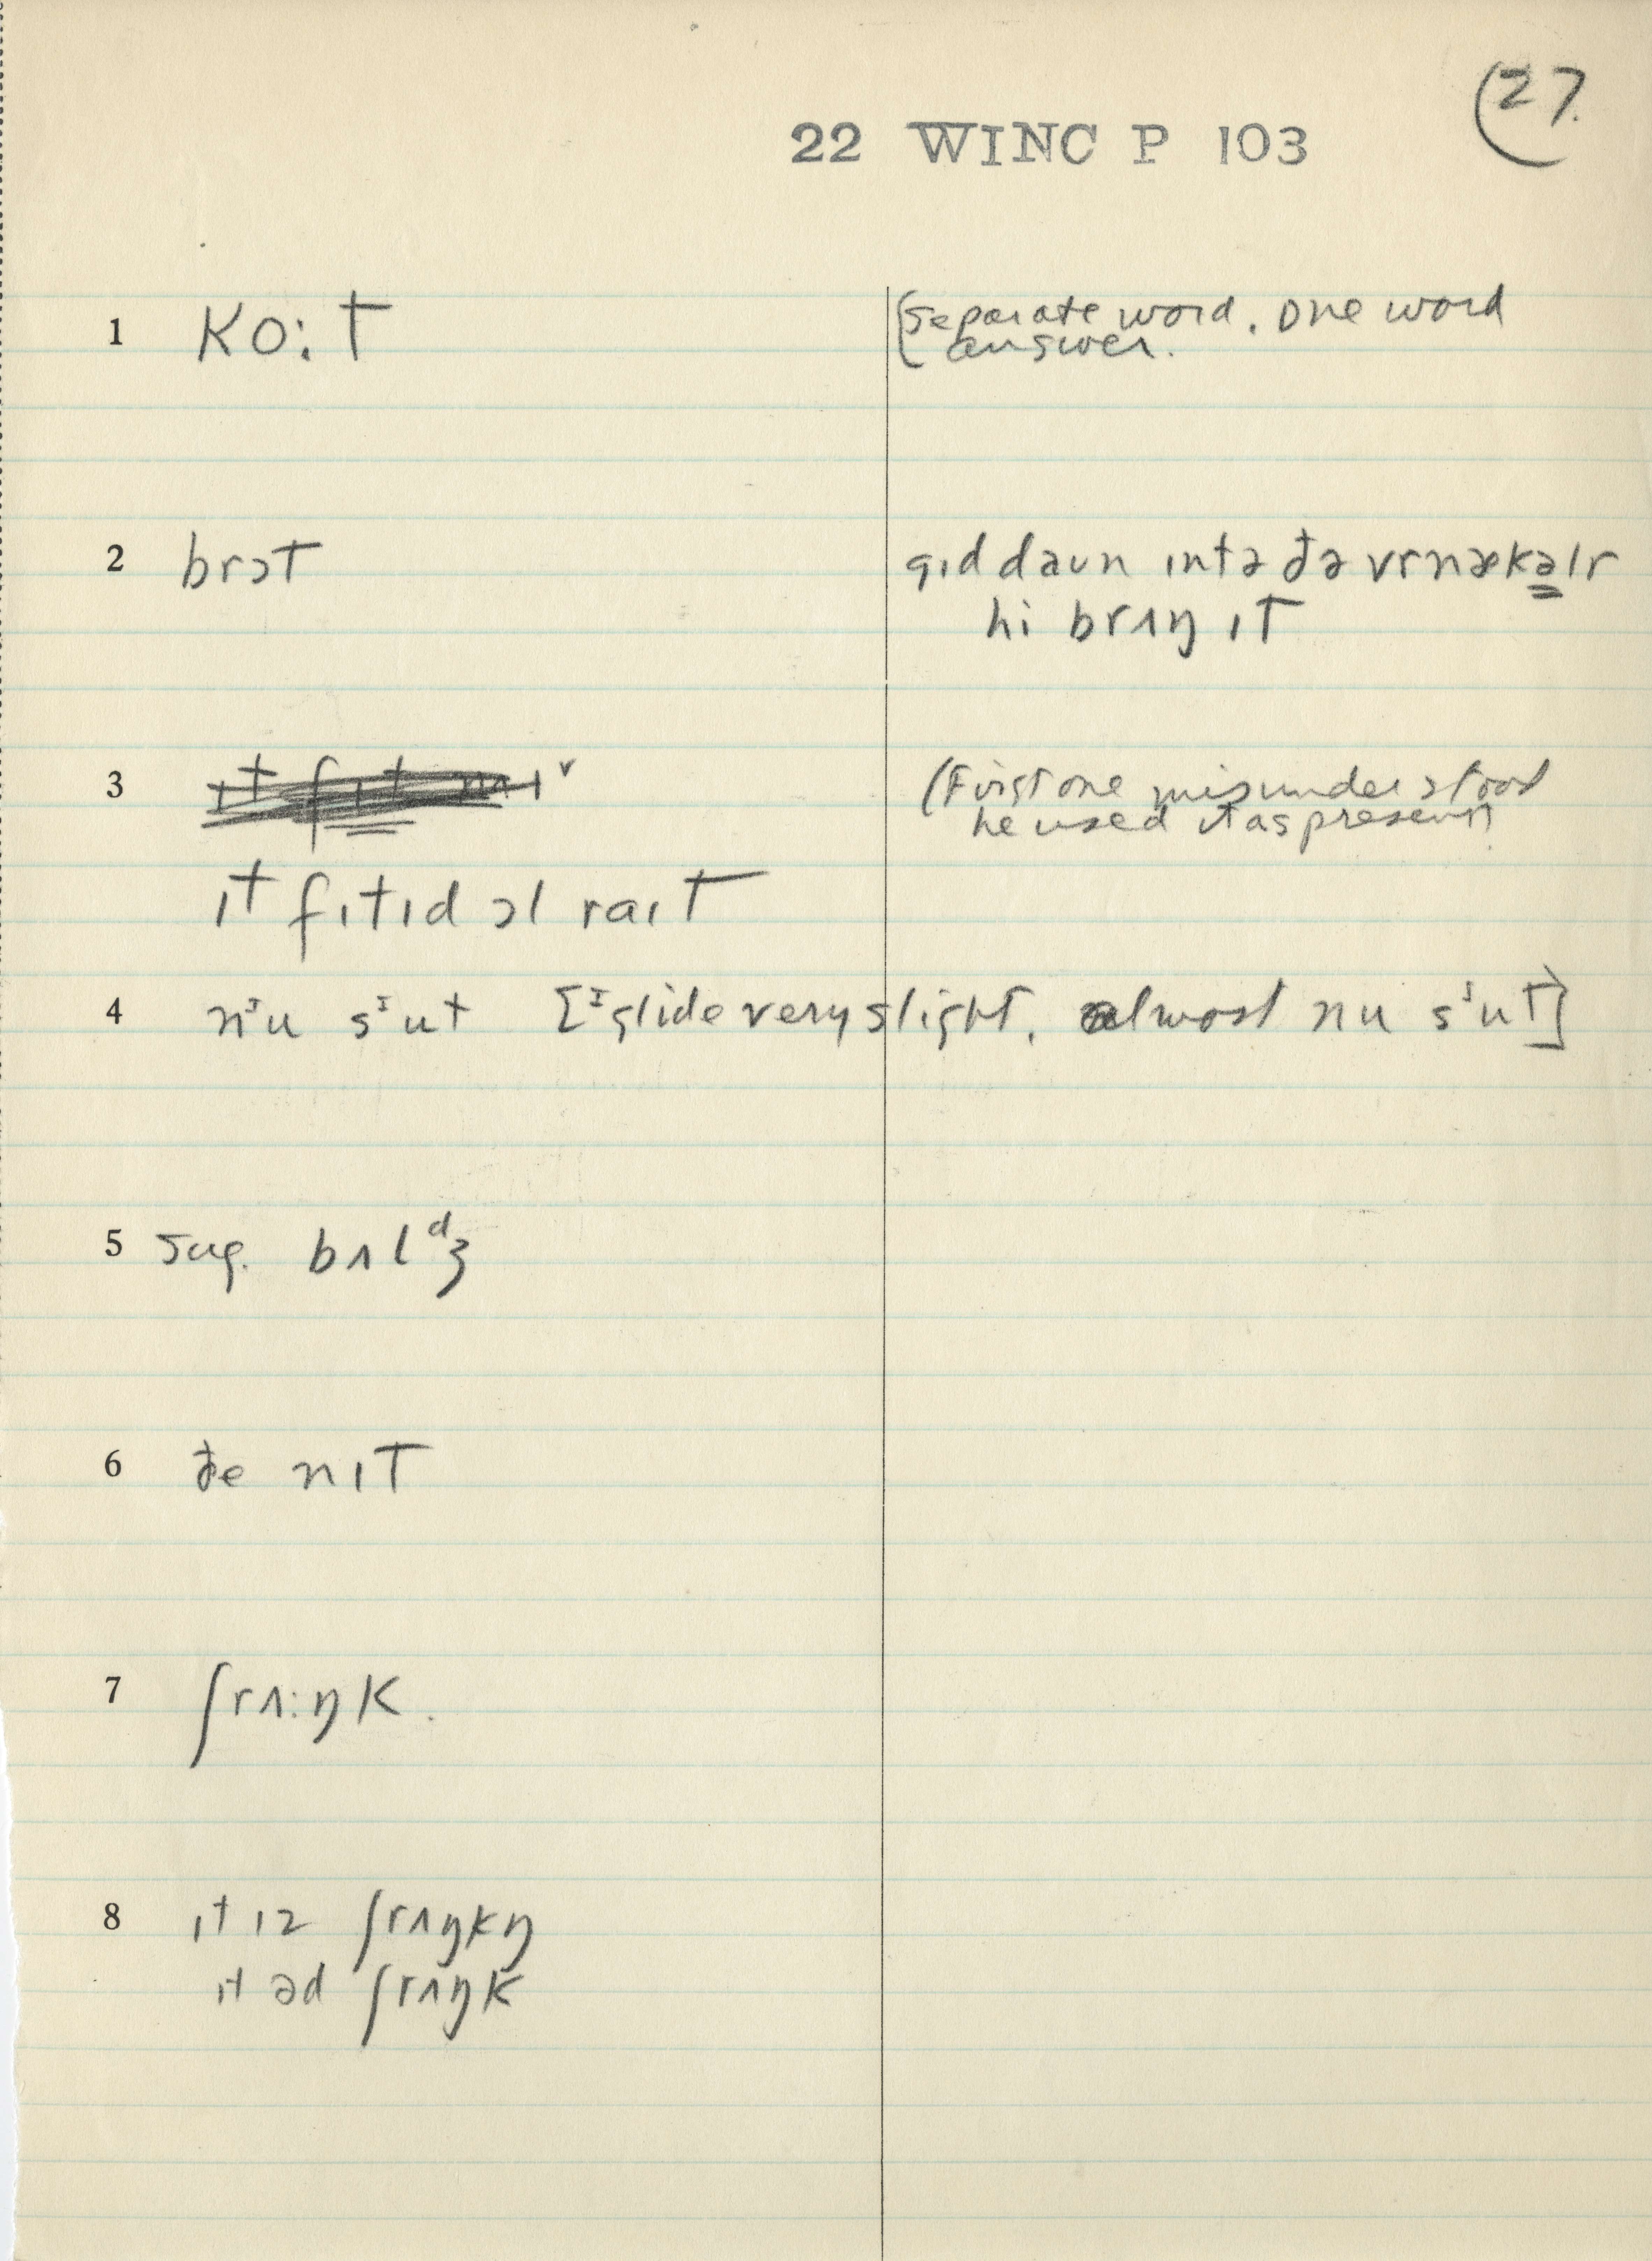 (27.
22 WINC P 103
1 ko:t (Separate word. One word
answer.
2 brɔt gɪd daun ɪntə ðə vrnækəlr
hi brʌŋ ɪt
3 ɪt fɪt mi v (First one misunderstood
he used it as present)
ɪt fɪtɪd ɔl raɪt
4 nᶦu sᶦut [ᶦ glide very slight, almost nu sᶦut]
5 sug. bʌlᵈʒ
6 ðe nɪt
7 ʃrʌ:ŋk.
8 ɪt ɪz ʃrʌŋkŋ
ɪt əd ʃrʌŋk